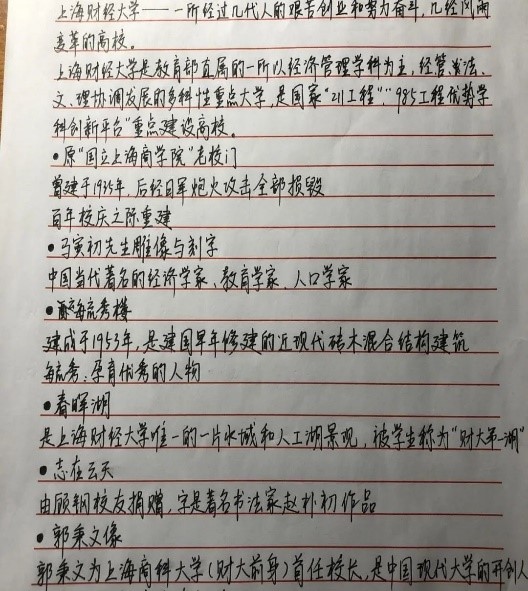 上海财经大学——一所经过几代人的艰苦创业和努力奋斗，几经风雨
变革的高校。
上海财经大学是教育部直属的一所以经济管理学科为主，经管、法、
文、理协调发展的多科性重点大学，是国家“211工程”“985工程优势学
科创新平台”重点建设高校。
•原“国立上海商学院”老校门
曾建于1935年，后经日军炮火攻击全部损毁
百年校庆之际重建
•马寅初先生雕像与刻字
中国当代著名的经济学家、教育学家、人口学家
•毓秀楼
建成于1953年，是建国早年修建的近现代砖木混合结构建筑
毓秀：孕育优秀的人物
•春晖湖
是上海财经大学唯一的一片水域和人工湖景观，被学生称为“财大第一湖”
•志在云天
由顾钢校友捐赠，字是著名书法家赵朴初作品
•郭秉文像
郭秉文为上海商科大学（财大前身）首任校长，是中国现代大学的开创人